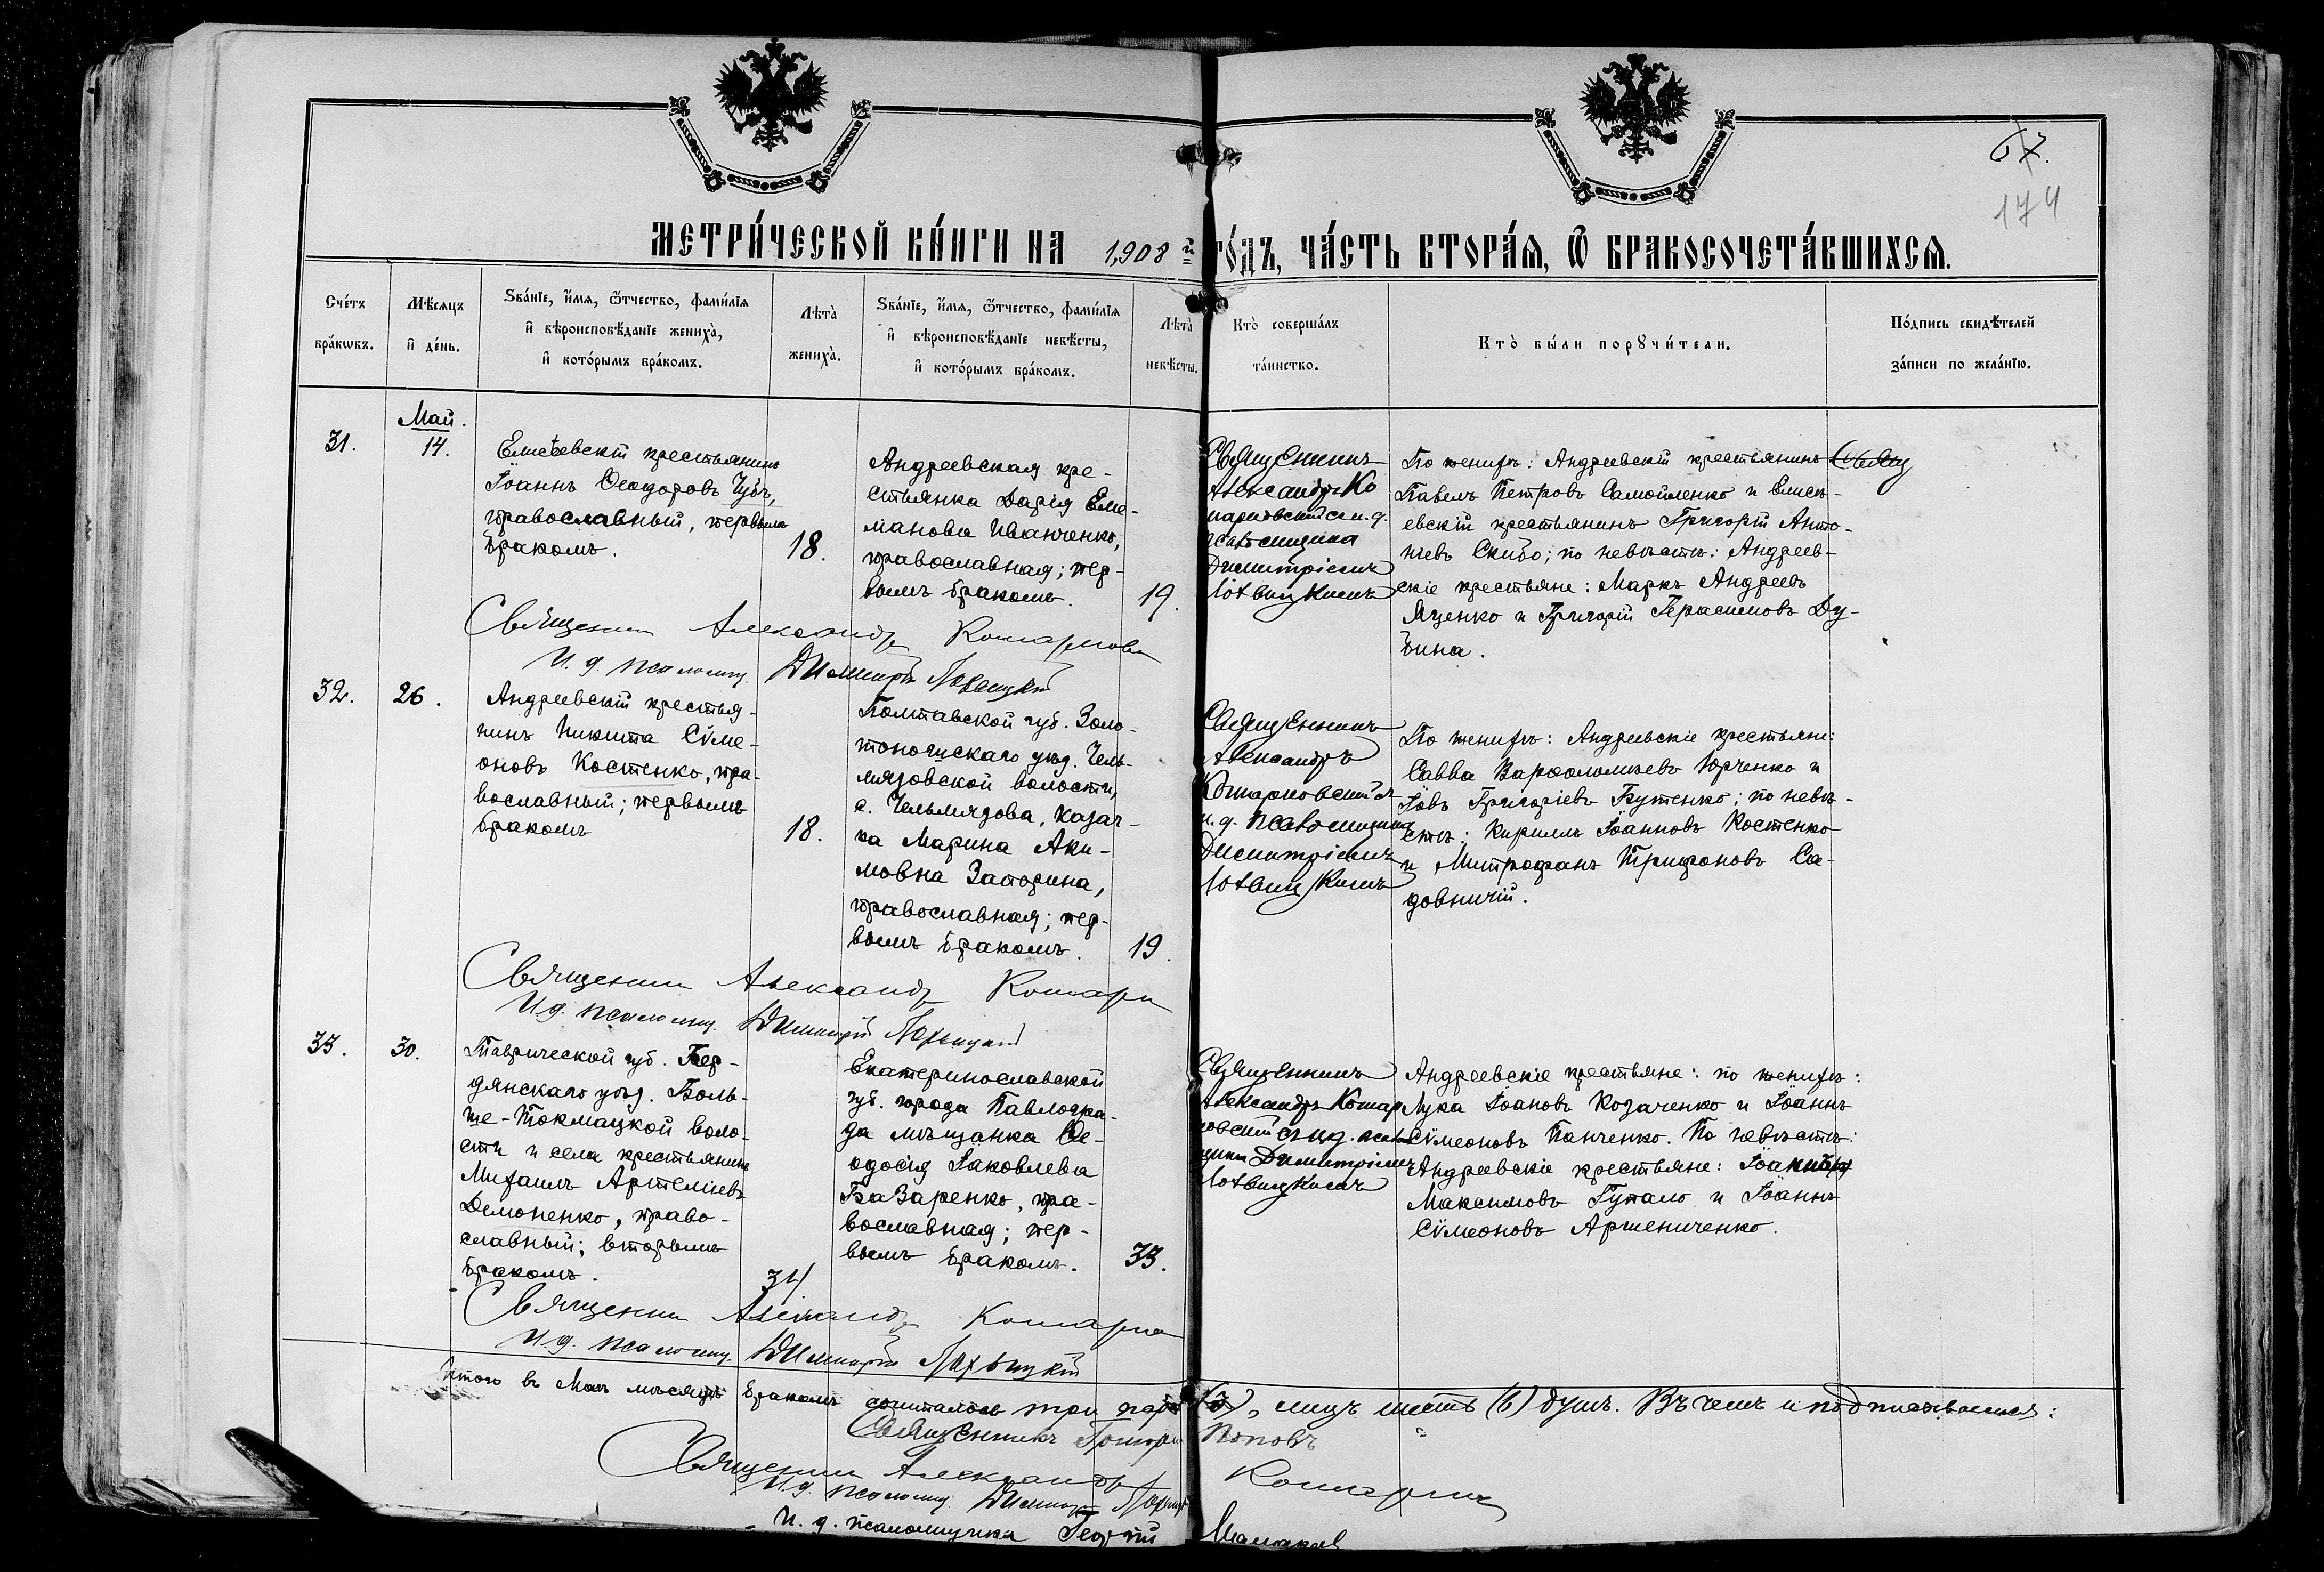 67.
174
МЕТРИ́ЧЕСКОЙ КНИ́ГИ НА 1908й ГО́ДЪ, ЧА́СТЬ ВТОРА́Я, Ѡ БРАКОСОЧЕТА́ВШИХСЯ.
Сче́тъ бра́кѡвъ.
Мѣ́сяцъ и҆ де́нь.
Ѕва́нїе, и҆́мя, ѻ҆́тчество, фами́лїя
и҆ вѣроисповѣ́данїе жениха̀,
и҆ кото́рымъ бра́комъ.
Лѣта̀ жениха̀.
Ѕва́нїе, и҆́мя, ѻ҆́тчество, фами́лїя
и҆ вѣроисповѣ́данїе невѣ́сты,
и҆ кото́рымъ бра́комъ.
Лѣта̀ невѣ́сты.
Кто̀ соверша́лъ та́инство.
Кто̀ бы́ли порꙋчи́тели.
По́дпись свидѣ́телей
за́писи по жела́нїю.
Май.
31.
14.
Елисѣевскій крестьянинъ
Іоаннъ Ѳеодоровъ Чубъ,
православный, первымъ
бракомъ.
18.
Андреевская кре-
стьянка Дарія
Иванченко,
православная; пер-
вымъ бракомъ.
19.
Священникъ
Александръ Ко
марновскій съ и. д.
псаломщика
Димитріемъ
По женихѣ: Андреевскій крестьянинъ
Павелъ Петровъ Самойленко и Елисѣ-
евскій крестьянинъ Григорій Анто-
ніевъ Скибо; по невѣстѣ: Андреев-
скіе крестьяне: Маркъ Андреевъ
Яценко и Григорій Герасимовъ Ду-
бина.
Священник Александр
И. д. псаломщ. Димитрій
32.
26.
Андреевскій крестья-
нинъ Никита Сѵме-
оновъ Костенко, пра-
вославный; первымъ
бракомъ
18.
Полтавской губ. Золо-
тоношскаго уѣзд. Чель-
мязовской волости,
с. Чельмязова, казач-
ка Марина Аки-
мовна Запорина,
православная; пер-
вымъ бракомъ.
19.
Священникъ
Александръ
съ
и. д. псаломщика
Димитріемъ
По женихѣ: Андреевскіе крестьяне:
Савва Варѳоломеевъ Юрченко и
Іовъ Григоріевъ Бутенко; по невѣ-
стѣ: Кириллъ Іоанновъ Костенко
и Митрофанъ Трифоновъ Са-
довничій.
Священник Александр
И. д. псаломщ. Димитрій
33.
30.
Таврической губ. Бер-
дянскаго уѣзд. Боль-
ше-Токмацкой воло-
сти и села крестьянинъ
Михаилъ Артеміевъ
Демоненко, право-
славный; вторымъ
бракомъ.
34
Екатеринославской
губ. города Павлогра-
да мѣщанка Ѳе-
одосія Іаковлева
Базаренко, пра-
вославная; пер-
вымъ бракомъ.
33.
Священникъ
Александръ
съ и. д. псалом
щика Димитріемъ
Андреевскіе крестьяне: по женихѣ:
Лука Іоановъ Козаченко и Іоаннъ
Сѵмеоновъ Панченко. По невѣстѣ:
Андреевскіе крестьяне:
Максимовъ Гупало и Іоаннъ
Сѵмеоновъ Арпениченко.
Священник Александр
И. д. псаломщ. Димитрій
Итого въ Маѣ мѣсяцѣ бракомъ сочеталось три пары (3), лицъ шесть (6) душъ. Въ чемъ и подписываемся:
Священникъ Григорій Поповъ
Священник Александр
И. д. псаломщ. Димитрій
И. д. псаломщика Георгій